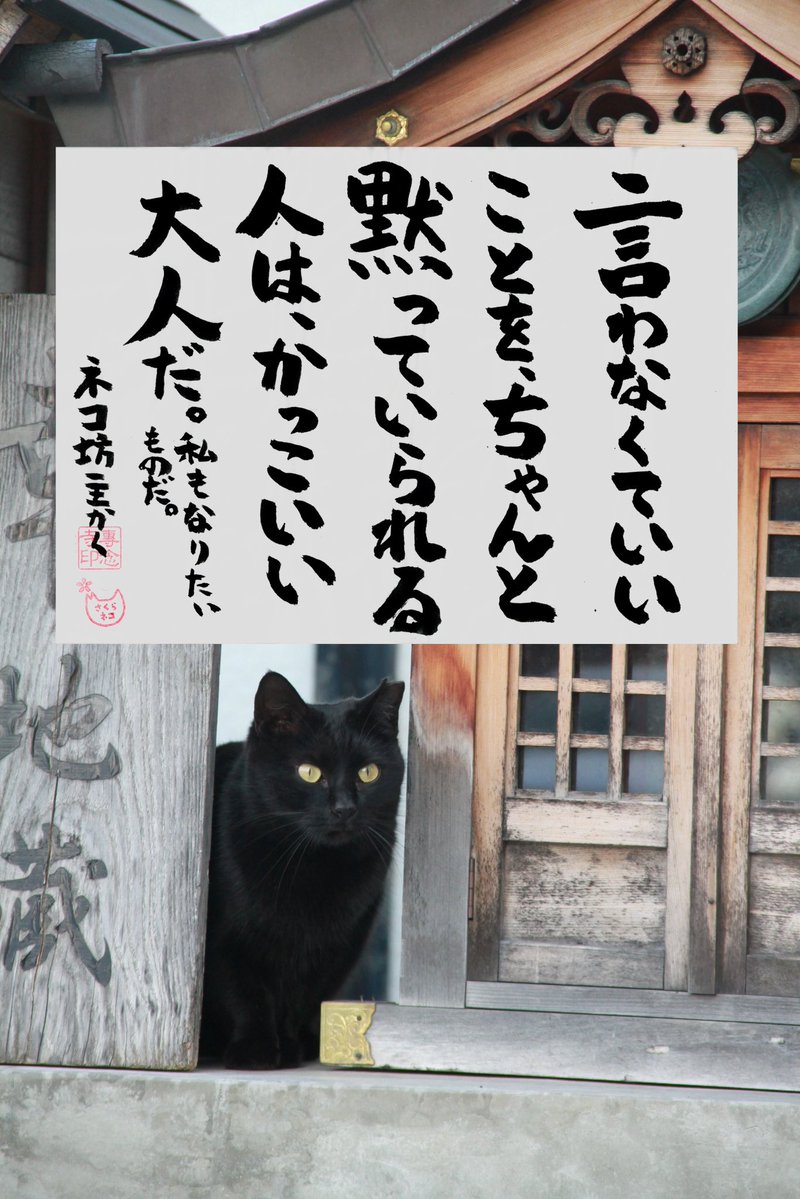 言わなくていい
ことを、ちゃんと
黙っていられる
人は、かっこいい
大人だ。
私もなりたい
ものだ。
ネコ坊主かく
專念
寺印
さくら
ネコ
地蔵